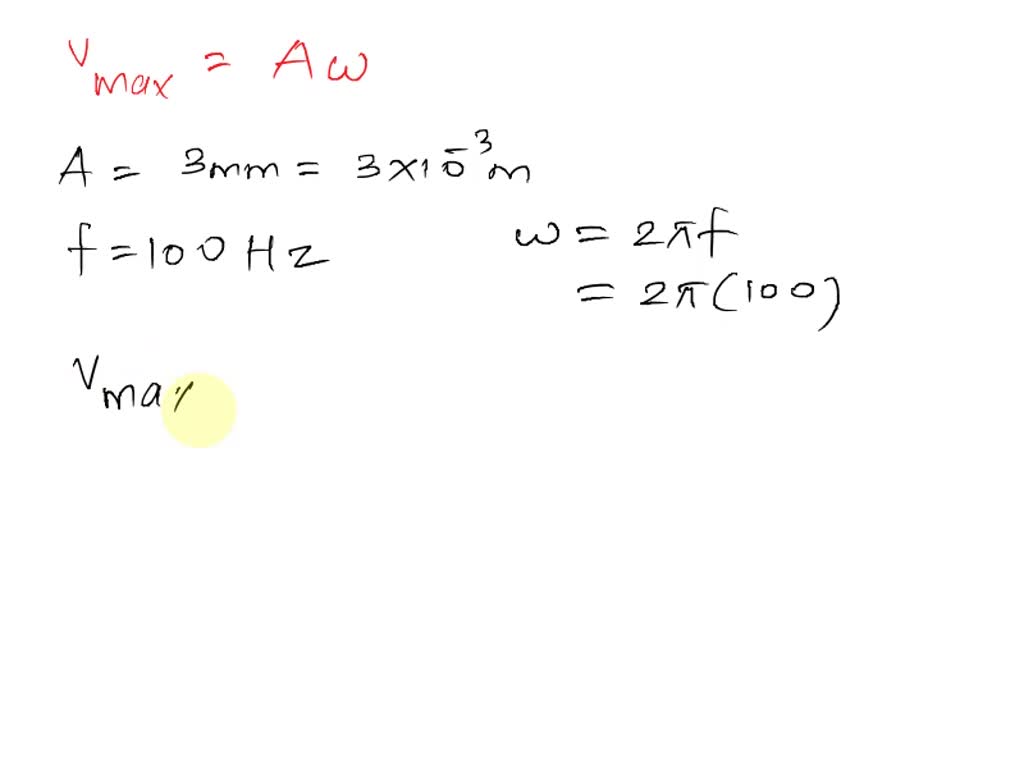 v max = Aω
A = 3mm = 3×10⁻³ m
f = 100 Hz
ω = 2πf
= 2π(100)
v max